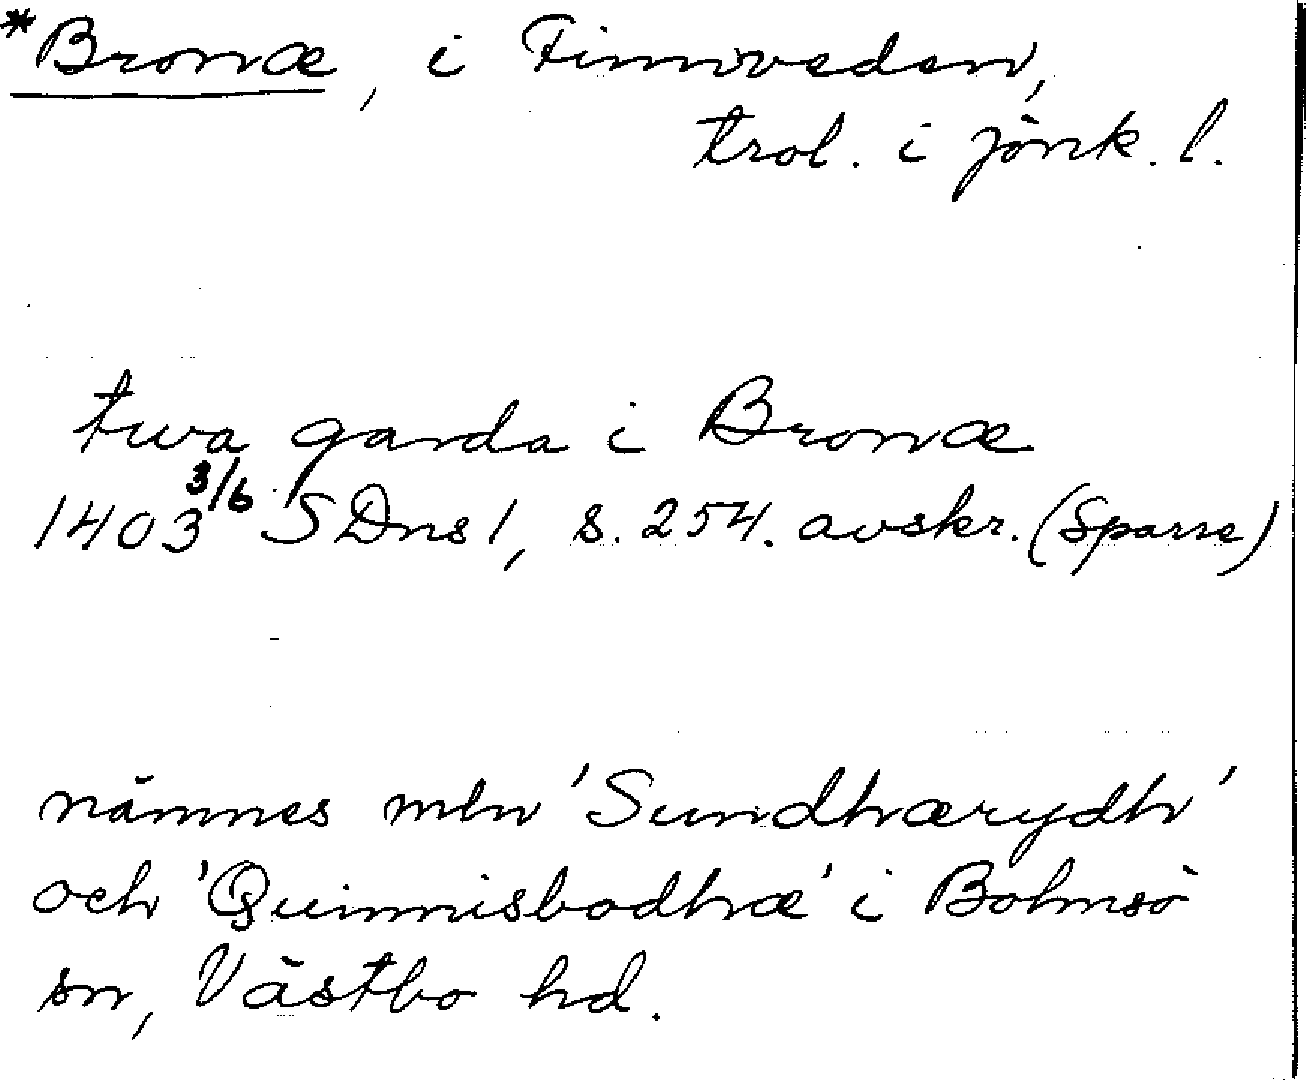 *Bronæ, i Finnveden,
trol. i Jönk. l.
twa garda i Bronæ
1403 3/6 SDns 1, s. 254. avskr. (Sparre)
nämnes mln 'Sundhærydh'
och 'Quinnisbodhæ' i Bolmsö
sn, Västbo hd.